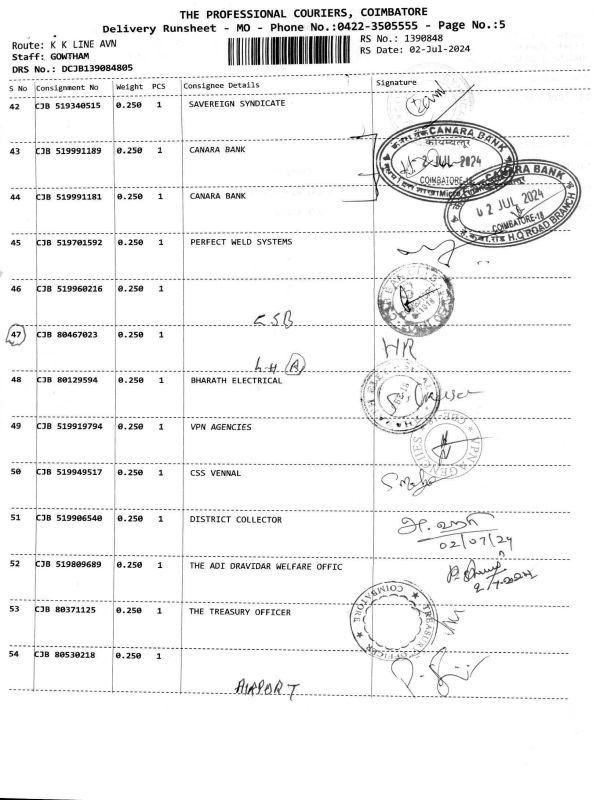 THE PROFESSIONAL COURIERS, COIMBATORE
Delivery Runsheet - MO - Phone No.:0422-3505555 - Page No.:5
Route: K K LINE AVN
RS No.: 1390848
Staff: GOWTHAM
RS Date: 02-Jul-2024
DRS No.: DCJB139084805
S No Consignment No Weight PCS Consignee Details Signature
42 CJB 519340515 0.250 1 SAVEREIGN SYNDICATE
43 CJB 519991189 0.250 1 CANARA BANK
CANARA BANK
कोयम्बत्तूर
2 JUL 2024
COIMBATORE-18
44 CJB 519991181 0.250 1 CANARA BANK
CANARA BANK
02 JUL 2024
COIMBATORE-18
H.Q ROAD BRANCH
45 CJB 519701592 0.250 1 PERFECT WELD SYSTEMS
46 CJB 519960216 0.250 1
ESB
47 CJB 80467023 0.250 1
HR
L.H (A)
48 CJB 80129594 0.250 1 BHARATH ELECTRICAL
49 CJB 519919794 0.250 1 VPN AGENCIES
VPN AGENCIES
50 CJB 519949517 0.250 1 CSS VENNAL
51 CJB 519906540 0.250 1 DISTRICT COLLECTOR
02/07/24
52 CJB 519809689 0.250 1 THE ADI DRAVIDAR WELFARE OFFIC
2/7.2024
53 CJB 80371125 0.250 1 THE TREASURY OFFICER
COIMBATORE
TREASURY OFFICER
54 CJB 80530218 0.250 1
AIRPORT